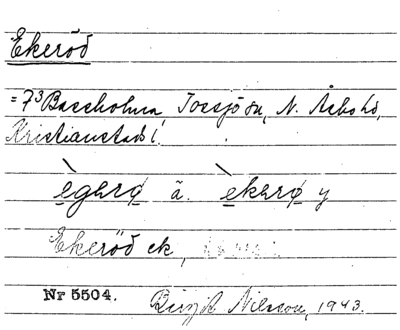 Ekeröd
= 7³ Bassholma, Tossjö sn, N. Åsbo hd,
Kristianstads l.
ègarø ä. èkarø y
Ekeröd ek,
Nr 5504. Birgit Nilsson, 1943.